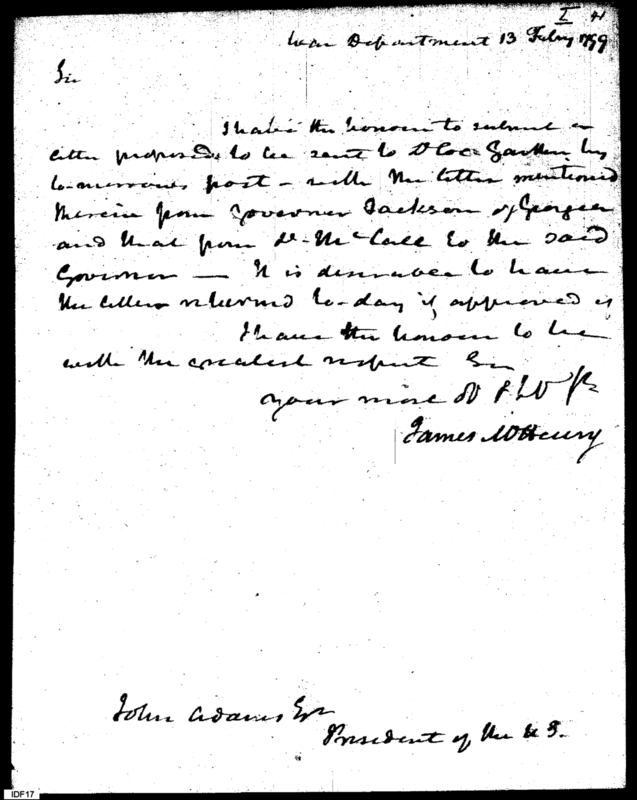 I 41
War Department 13 Febry 1799
Sir
I have the honour to submit a
letter proposed to be sent to Lt Col. Gaither by
to-morrows post - with the letter mentioned
therein from Governor Jackson of Georgia
and that from Mr. McCall to the said
Governor — It is desireable to have
the letters returned to-day if approved of
I have the honour to be
with the greatest respect Sir
your most Ob
James McHenry
John Adams Esqr
President of the U S.
IDF17